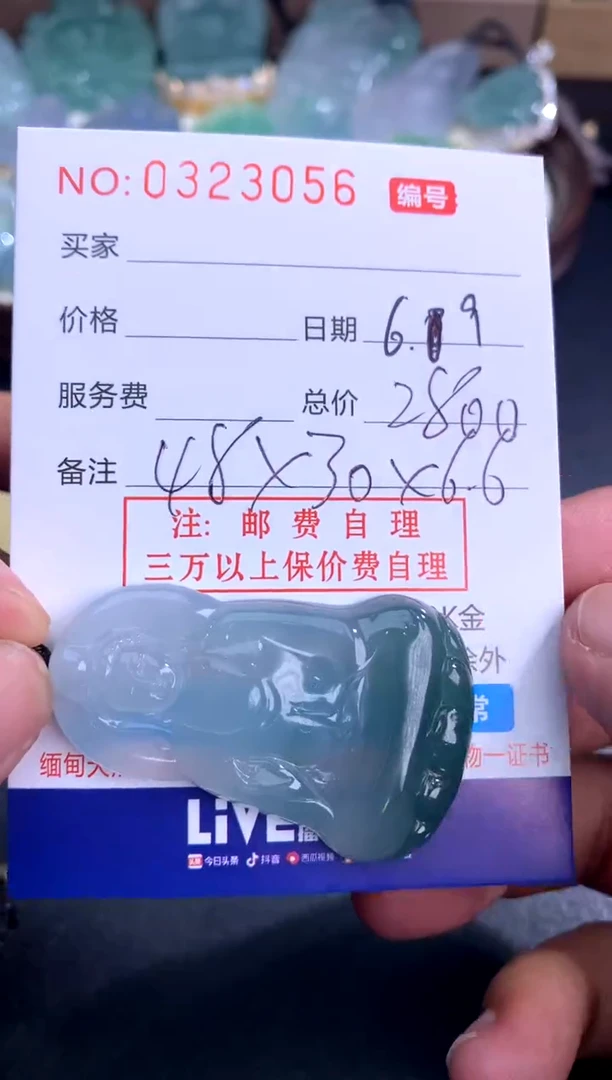 NO: 0323056 编号
买家
价格 日期 6.19
服务费 总价 2800
备注 48×30×6.6
注: 邮费自理
三万以上保价费自理
金
除外
常
缅甸天 物一证书
LiVE
今日头条 抖音 西瓜视频